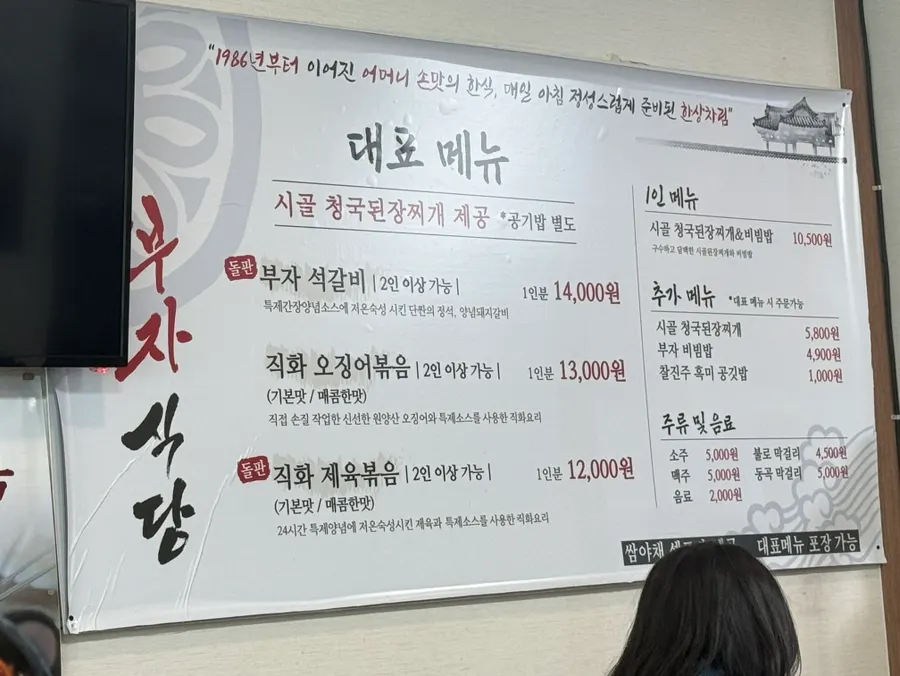 "1986년부터 이어진 어머니 손맛의 한식, 매일 아침 정성스럽게 준비된 한상차림"
부자식당
대표 메뉴
시골 청국된장찌개 제공 *공기밥 별도
돌판 부자 석갈비 | 2인 이상 가능 | 1인분 14,000원
특제간장양념소스에 저온숙성 시킨 단짠의 정석, 양념돼지갈비
직화 오징어볶음 | 2인 이상 가능 | 1인분 13,000원
(기본맛 / 매콤한맛)
직접 손질 작업한 신선한 원양산 오징어와 특제소스를 사용한 직화요리
돌판 직화 제육볶음 | 2인 이상 가능 | 1인분 12,000원
(기본맛 / 매콤한맛)
24시간 특제양념에 저온숙성시킨 제육과 특제소스를 사용한 직화요리
1인 메뉴
시골 청국된장찌개&비빔밥 10,500원
구수하고 담백한 시골된장찌개와 비빔밥
추가 메뉴 *대표 메뉴 시 주문가능
시골 청국된장찌개 5,800원
부자 비빔밥 4,900원
찰진주 흑미 공깃밥 1,000원
주류 및 음료
소주 5,000원 불로 막걸리 4,500원
맥주 5,000원 동곡 막걸리 5,000원
음료 2,000원
쌈야채 대표메뉴 포장 가능